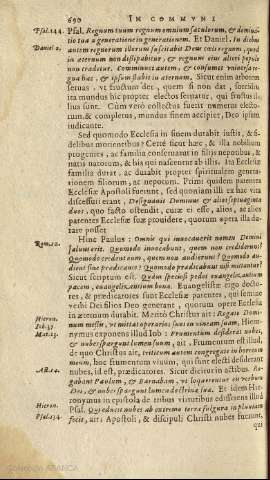 690 IN COMMVNI
Psal. 144. Psal. Regnum tuum regnum omnium sæculorum, & domina-
tio tua a generatione in generationem. Et Daniel. In diebus
Daniel 2. autem regnorum illorum suscitabit Deus cœli regnum, quod
in æternum non dissipabitur, & regnum eius alteri populo
non tradetur. Comminuet autem, & consumet vniuersa re-
gna hæc, & ipsum stabit in æternum. Sicut enim arborem
seruas, vt fructum det, quem si non dat, succidis,
ita mundus hic propter electos seruatur, qui fructus il-
lius sunt. Cum verò collectus fuerit numerus electo-
rum, & completus, mundus finem accipiet, Deo ipsum
iudicante.
Sed quomodo Ecclesia in finem durabit iustis, &
fidelibus morientibus? Certè sicut hæc, & illa nobilium
progenies, ac familia conseruatur in filiis nepotibus, &
natis natorum, & his qui nascentur ab illis. Ita Ecclesiæ
familia durat, ac durabit propter spiritualem genera-
tionem filiorum, ac nepotum. Primi quidem parentes
Ecclesiæ Apostoli fuerunt, sed quoniam illi ex hac vita
discessuri erant, Designauit Dominus & alios septuaginta
duos, quo facto ostendit, curæ ei esse, alios, ac alios
parentes Ecclesiæ suæ prouidere, quorum opera illa du-
rare posset.
Rom. 10. Hinc Paulus: Omnis qui inuocauerit nomen Domini
saluus erit. Quomodo inuocabunt, quem non crediderunt?
Quomodo credent eum, quem non audierunt? Quomodo au-
dient sine prædicante? quomodo prædicabunt nisi mittantur?
Sicut scriptum est. Quàm speciosi pedes euangelizantium
pacem, euangelizantium bona. Euangelistæ ergo docto-
res, & prædicatores sunt Ecclesiæ parentes, qui semine
verbi Dei filios Deo generant, quorum opere Ecclesia
in æternum durabit. Meritò Christus ait: Rogate Domi-
num messis, vt mittat operarios suos in vineam suam, Hiero-
Hieron.
Iob. 37. nymus exponens illud Iob: Frumentum desiderat nubes,
Mat. 13. & nubes spargunt lumen suum, ait, Frumentum est illud,
de quo Christus ait, triticum autem congregate in horreum
meum, hoc frumentum viuum, qui sunt electi desiderant
Act. 14. nubes, id est, prædicatores. Sicut dicitur in actibus. Ro-
gabant Paulum, & Barnabam, vt loquerentur eis verbum
Dei, & nubes spargunt lumen doctrinæ suæ. Et idem Hie-
Hieron. ronymus in epistola de tribus virtutibus edisserens illud
Psal. 134. Psal. Qui educit nubes ab extremo terræ fulgura in pluuiam
fecit, ait: Apostoli, & discipuli Christi nubes fuerunt,
qui